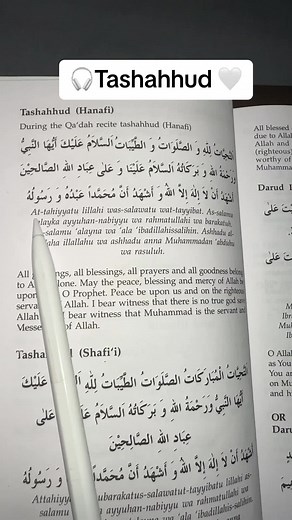 🎧Tashahhud 🤍
Tashahhud (Hanafi)
During the Qa'dah recite tashahhud (Hanafi)
اَلتَّحِيَّاتُ لِلّٰهِ وَ الصَّلَوَاتُ وَ الطَّيِّبَاتُ اَلسَّلَامُ عَلَيْكَ اَيُّهَا النَّبِيُّ
وَرَحْمَةُ اللهِ وَ بَرَكَاتُهُ اَلسَّلَامُ عَلَيْنَا وَ عَلٰى عِبَادِ اللهِ الصَّالِحِيْنَ
اَشْهَدُ اَنْ لَا اِلٰهَ اِلَّا اللهُ وَ اَشْهَدُ اَنَّ مُحَمَّداً عَبْدُهُ وَ رَسُوْلُهُ
At-tahiyyatu lillahi was-salawatu wat-tayyibat. As-salamu
'alayka ayyuhan-nabiyyu wa rahmatullahi wa barakatuh.
-salamu 'alayna wa 'ala 'ibadillahissalihin. Ashhadu al-
ilaha illallahu wa ashhadu anna Muhammadan 'abduhu
wa rasuluh.
All blessings, all prayers and all goodness belong
to A lone. May the peace, blessing and mercy of Allah be
upon O Prophet. Peace be upon us and on the righteous
servan Allah. I bear witness that there is no true god save
Allah I bear witness that Muhammad is the servant and
Messe of Allah.
Tasha (Shafi'i)
اَلتَّحِيَّاتُ الْمُبَارَكَاتُ الصَّلَوَاتُ الطَّيِّبَاتُ لِلّٰهِ اَلسَّلَامُ عَلَيْكَ
اَيُّهَا النَّبِيُّ وَرَحْمَةُ اللهِ وَ بَرَكَاتُهُ اَلسَّلَامُ عَلَيْنَا وَ عَلٰى
عِبَادِ اللهِ الصَّالِحِيْنَ
اَشْهَدُ اَنْ لَا اِلٰهَ اِلَّا اللهُ وَ اَشْهَدُ اَنَّ مُحَمَّداً وَ رَسُوْلُهُ
Attahiy ubarakatus-salawatut-tayyibatu lillahi as-
salamu ayyuhan-nabiyyu wa rahmatullahi wa
All blessed
due to Allah
Allah and
(righteous)
worthy of
Muhammad
Darud I
O Allah
as You
You are
and
OR
Daru